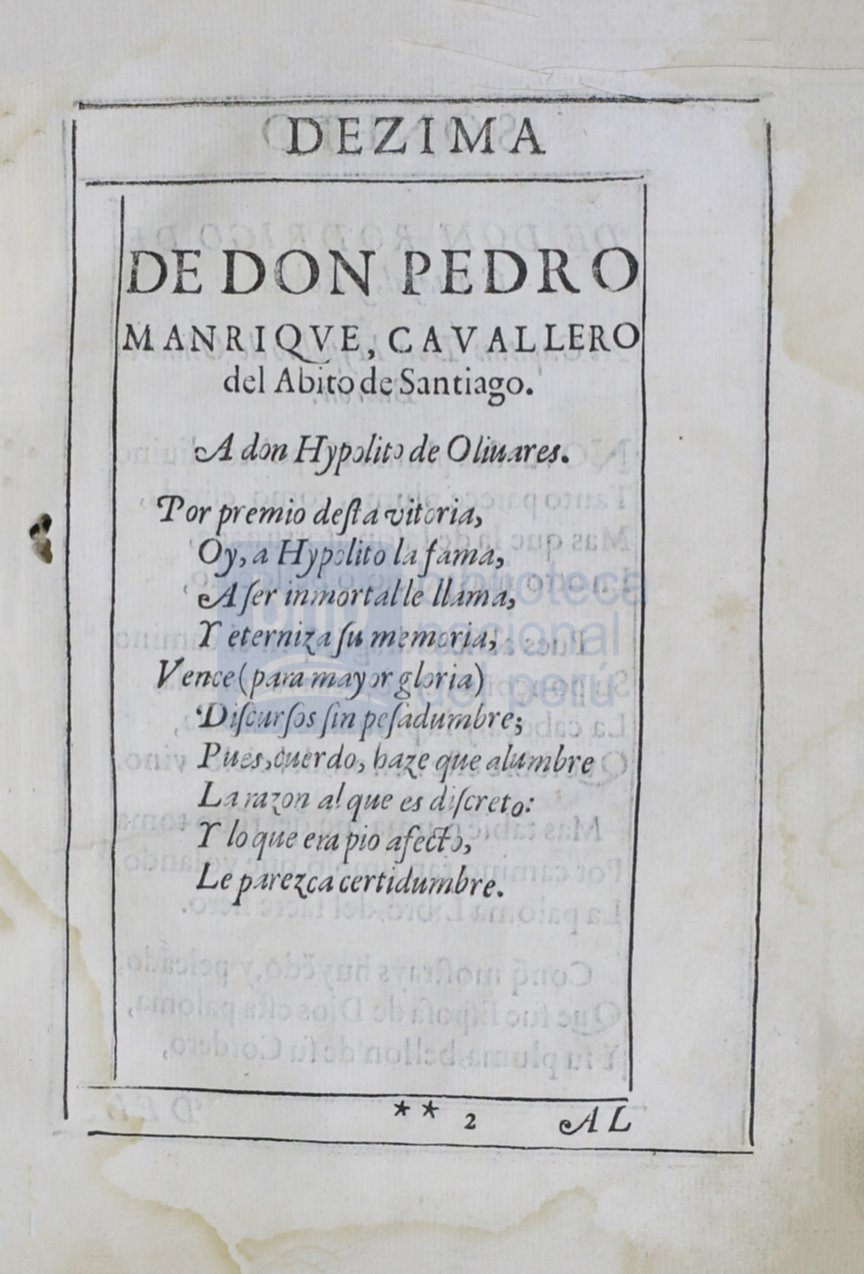 DEZIMA
DE DON PEDRO
MANRIQVE, CAVALLERO
del Abito de Santiago.
A don Hypolito de Oliuares.
Por premio deſta vitoria,
Oy, a Hypolito la fama,
A ſer inmortal le llama,
Y eterniza ſu memoria,
Vence (para mayor gloria)
Diſcurſos ſin peſadumbre;
Pues, cuerdo, haze que alumbre
La razon al que es diſcreto:
Y lo que era pio afecto,
Le parezca certidumbre.
** 2 AL
biblioteca
nacional
del perú